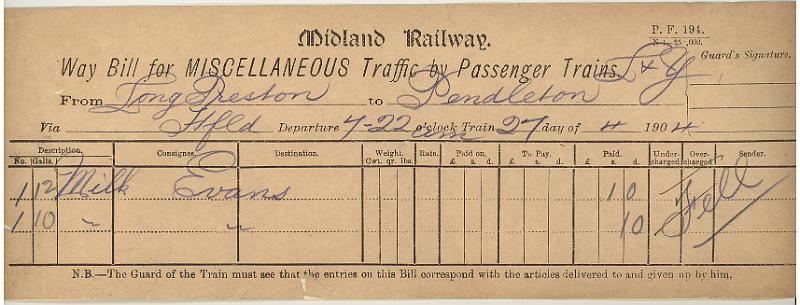 Midland Railway.
P. F. 194.
Way Bill for MISCELLANEOUS Traffic by Passenger Trains. L & Y
Guard's Signature.
From Long Preston to Pendleton
Via Hfld Departure 7-22 am o'clock Train 27 day of 4 1904
Description. Consignee. Destination. Weight. Rate. Paid on. To Pay. Paid. Under-charged Over-charged Sender.
No. Galls. Cwt. qr. lbs. £ s. d. £ s. d. £ s. d.
1 12 Milk Evans 1 0 Fell
1 10 " " 10
N.B.—The Guard of the Train must see that the entries on this Bill correspond with the articles delivered to and given up by him.